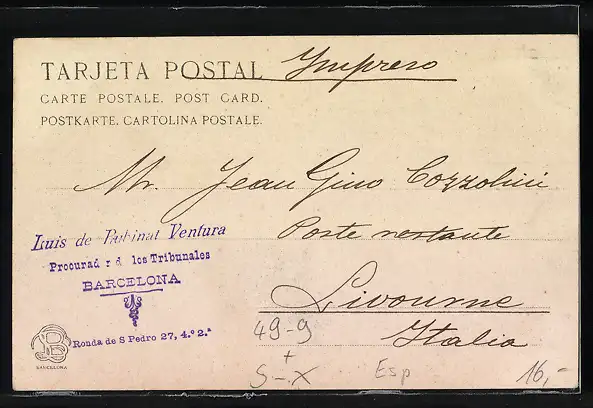 TARJETA POSTAL Impreso
CARTE POSTALE. POST CARD.
POSTKARTE. CARTOLINA POSTALE.
Mr. Jean Gino Cozzolini
Poste restante
Livourne
Italia
Luis de Rubinat Ventura
Procurad r d los Tribunales
BARCELONA
Ronda de S Pedro 27, 4.º 2.ª
BARCELONA
49-9
+
S-X
Esp
16,-